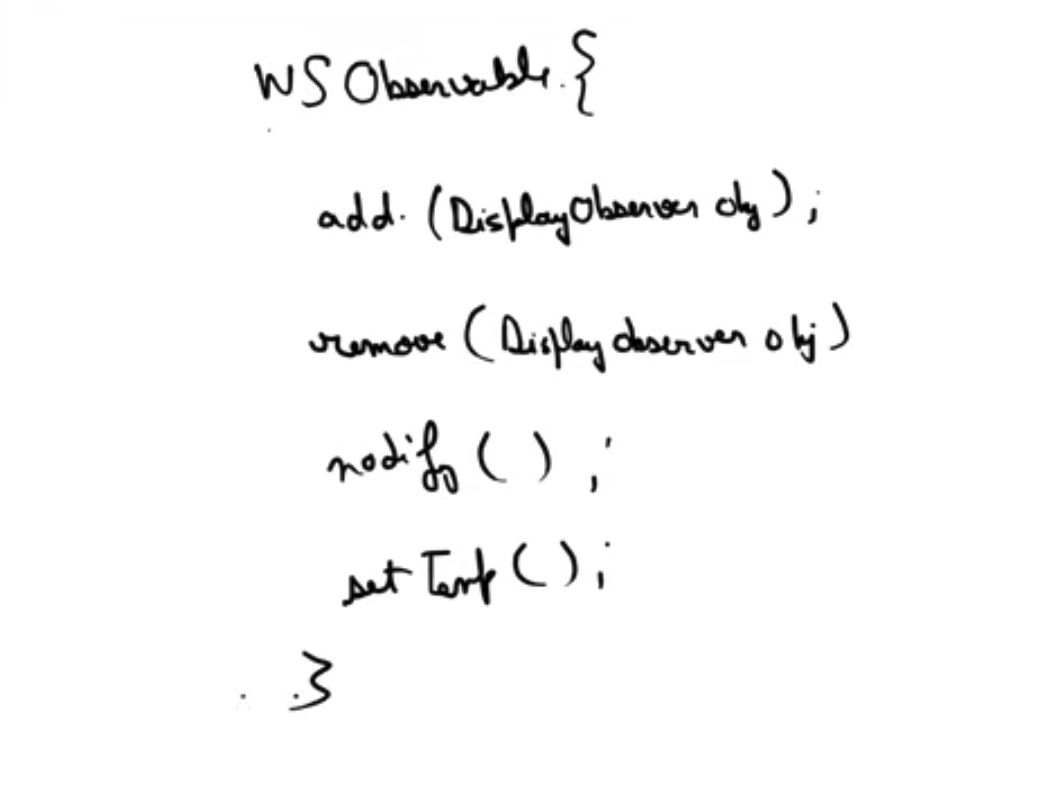 WSObservable {
add (DisplayObserver obj);
remove (Displayobserver obj)
nodify ( ) ;
setTemp ( ) ;
}